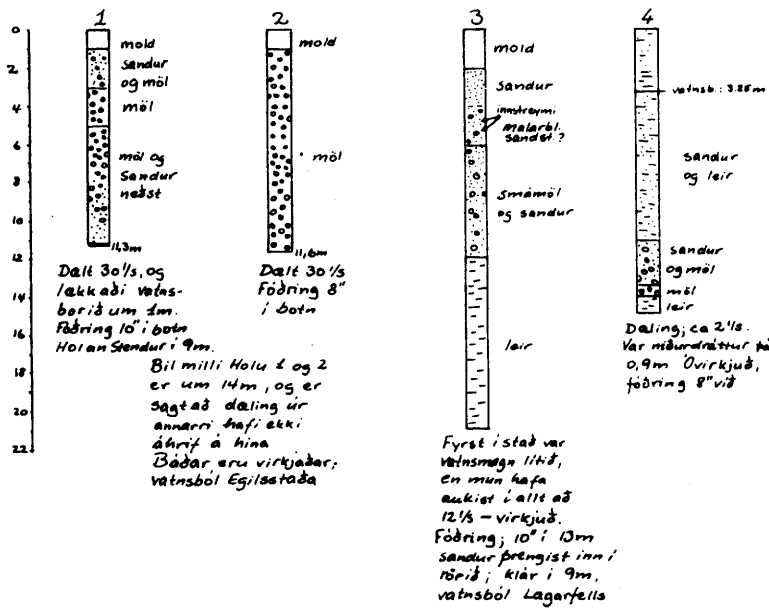 1
2
3
4
0
2
4
6
8
10
12
14
16
18
20
22
mold
sandur
og möl
möl
möl og
Sandur
neðst
11,3m
Dælt 30 l/s, og
lækkaði vatns-
borið um 1m.
Fóðring 10" í botn
Holan Stendur í 9m.
mold
möl
11,6m
Dælt 30 l/s
Fóðring 8"
í botn
Bil milli Holu 1 og 2
er um 14m, og er
sagt að dæling úr
annarri hafi ekki
áhrif á hina
Báðar eru virkjaðar;
vatnsból Egilsstaða
mold
Sandur
innstreymi
Malarbl.
sandst.?
Smámöl
og sandur
leir
Fyrst í stað var
vatnsmagn lítið,
en mun hafa
aukist í allt að
12 l/s – virkjuð.
Fóðring; 10" í 13m
sandur þrengist inn í
rörið; klár í 9m,
vatnsból Lagarfells
vatnsb.: 3.25m
Sandur
og leir
Sandur
og möl
möl
leir
Dæling; ca 2 l/s.
Var niðurdráttur þá
0,9m Óvirkjuð,
fóðring 8" víð